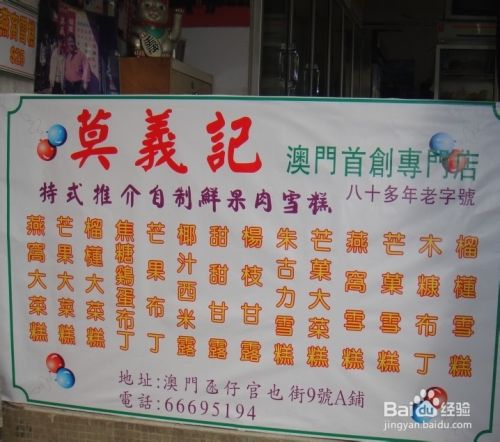 莫義記
澳門首創專門店
特式推介自制鮮果肉雪糕
八十多年老字號
燕窩大菜糕
芒果大菜糕
榴槤大菜糕
焦糖鷄蛋布丁
芒果布丁
椰汁西米露
甜甜甘露
楊枝甘露
朱古力雪糕
芒菓大菜糕
燕窩雪糕
芒菓雪糕
木糠布丁
榴槤雪糕
地址:澳門氹仔官也街9號A鋪
電話:66695194
Baidu经验
jingyan.baidu.com